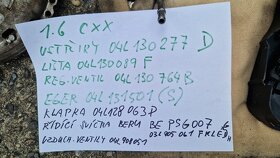 1.6 CXX
VSTŘIKY 04L 130 277 D
LIŠTA 04L 130 089 F
REG. VENTIL 04L 130 764 B
EGER 04L 131 501 (S)
KLAPKA 04L 128 063 P
ŘÍDÍCÍ SVÍČKA BERU BE PSG 007
03L 905 061 F
VENTILY 04L 906 051